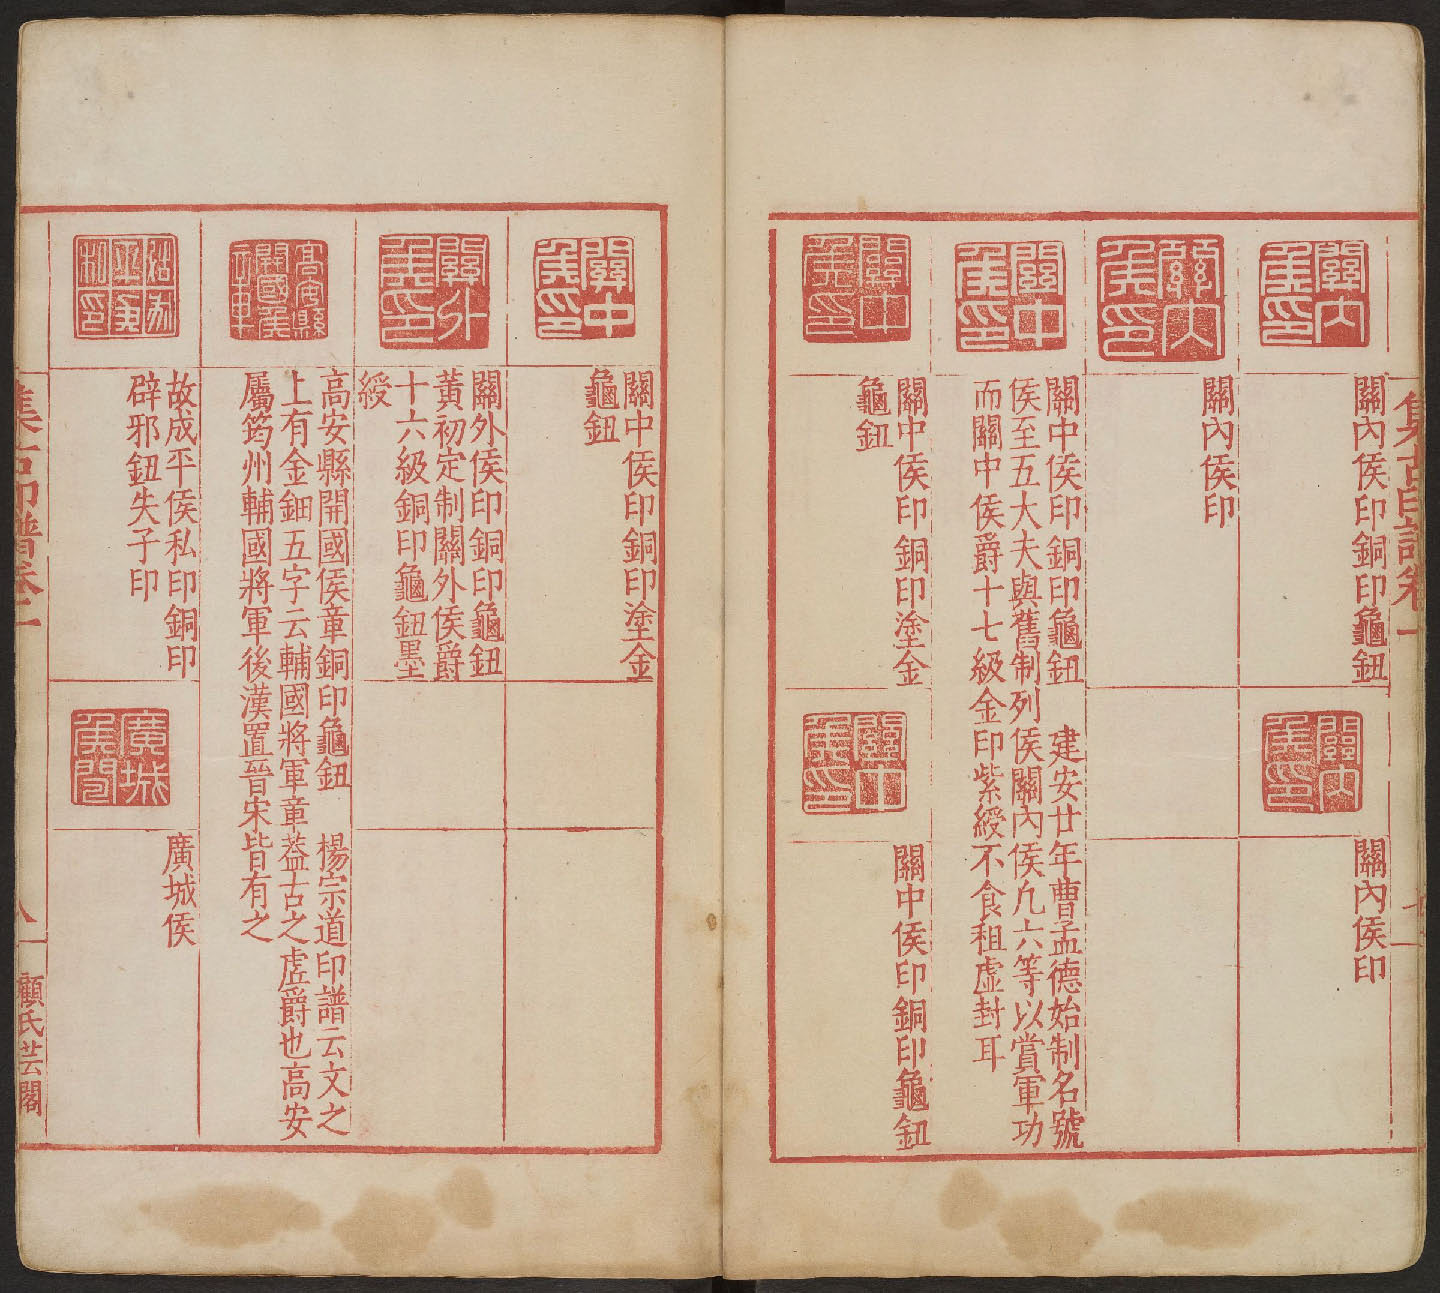 集古印譜卷二
關內侯印
關內侯印銅印龜鈕
關內侯印
關內侯印
關內侯印
關內侯印
關中侯印
關中侯印銅印龜鈕 建安廿年曹孟德始制名號
侯至五大夫與舊制列侯關內侯凢六等以賞軍功
而關中侯爵十七級金印紫綬不食租虛封耳
關中侯印
關中侯印銅印塗金
龜鈕
關中侯印
關中侯印銅印龜鈕
關中侯印
關中侯印銅印塗金
龜鈕
關外侯印
關外侯印銅印龜鈕
黃初定制關外侯爵
十六級銅印龜鈕墨
綬
高安縣開國侯章
高安縣開國侯章銅印龜鈕 楊宗道印譜云文之
上有金鈿五字云輔國將軍章蓋古之虛爵也高安
屬筠州輔國將軍後漢置晉宋皆有之
故成平侯私印銅印
辟邪鈕失子印
廣城侯
集古印譜卷二
八
顧氏芸閣